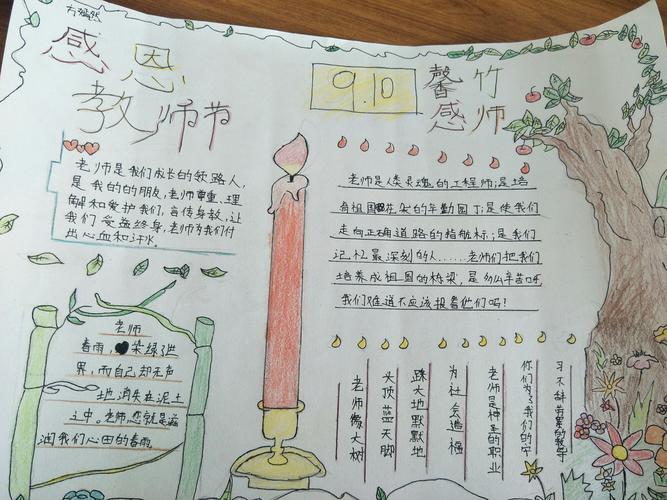 方嫣然
感恩
教师节
9.10
馨竹
感师
老师是我们成长的领路人,
是我的的朋友,老师尊重、理
解和爱护我们,言传身教,让
我们受益终身,老师为我们付
出心血和汗水。
老师是人类灵魂的工程师;是培
育祖国花朵的辛勤园丁;是使我们
走向正确道路的指航标;是我们
记忆最深刻的人……老师们把我们
培养成祖国的栋梁,是多么辛苦呀
我们难道不应该报着他们吗!
老师
春雨,染绿了世
界,而自己却无声
地消失在泥土
之中。老师,您就是滋
润我们心田的春雨
老师像大树
头顶蓝天脚
踩大地默默地
为社会造福
老师是神圣的职业
你们为了我们的学
习不辞劳累的教导